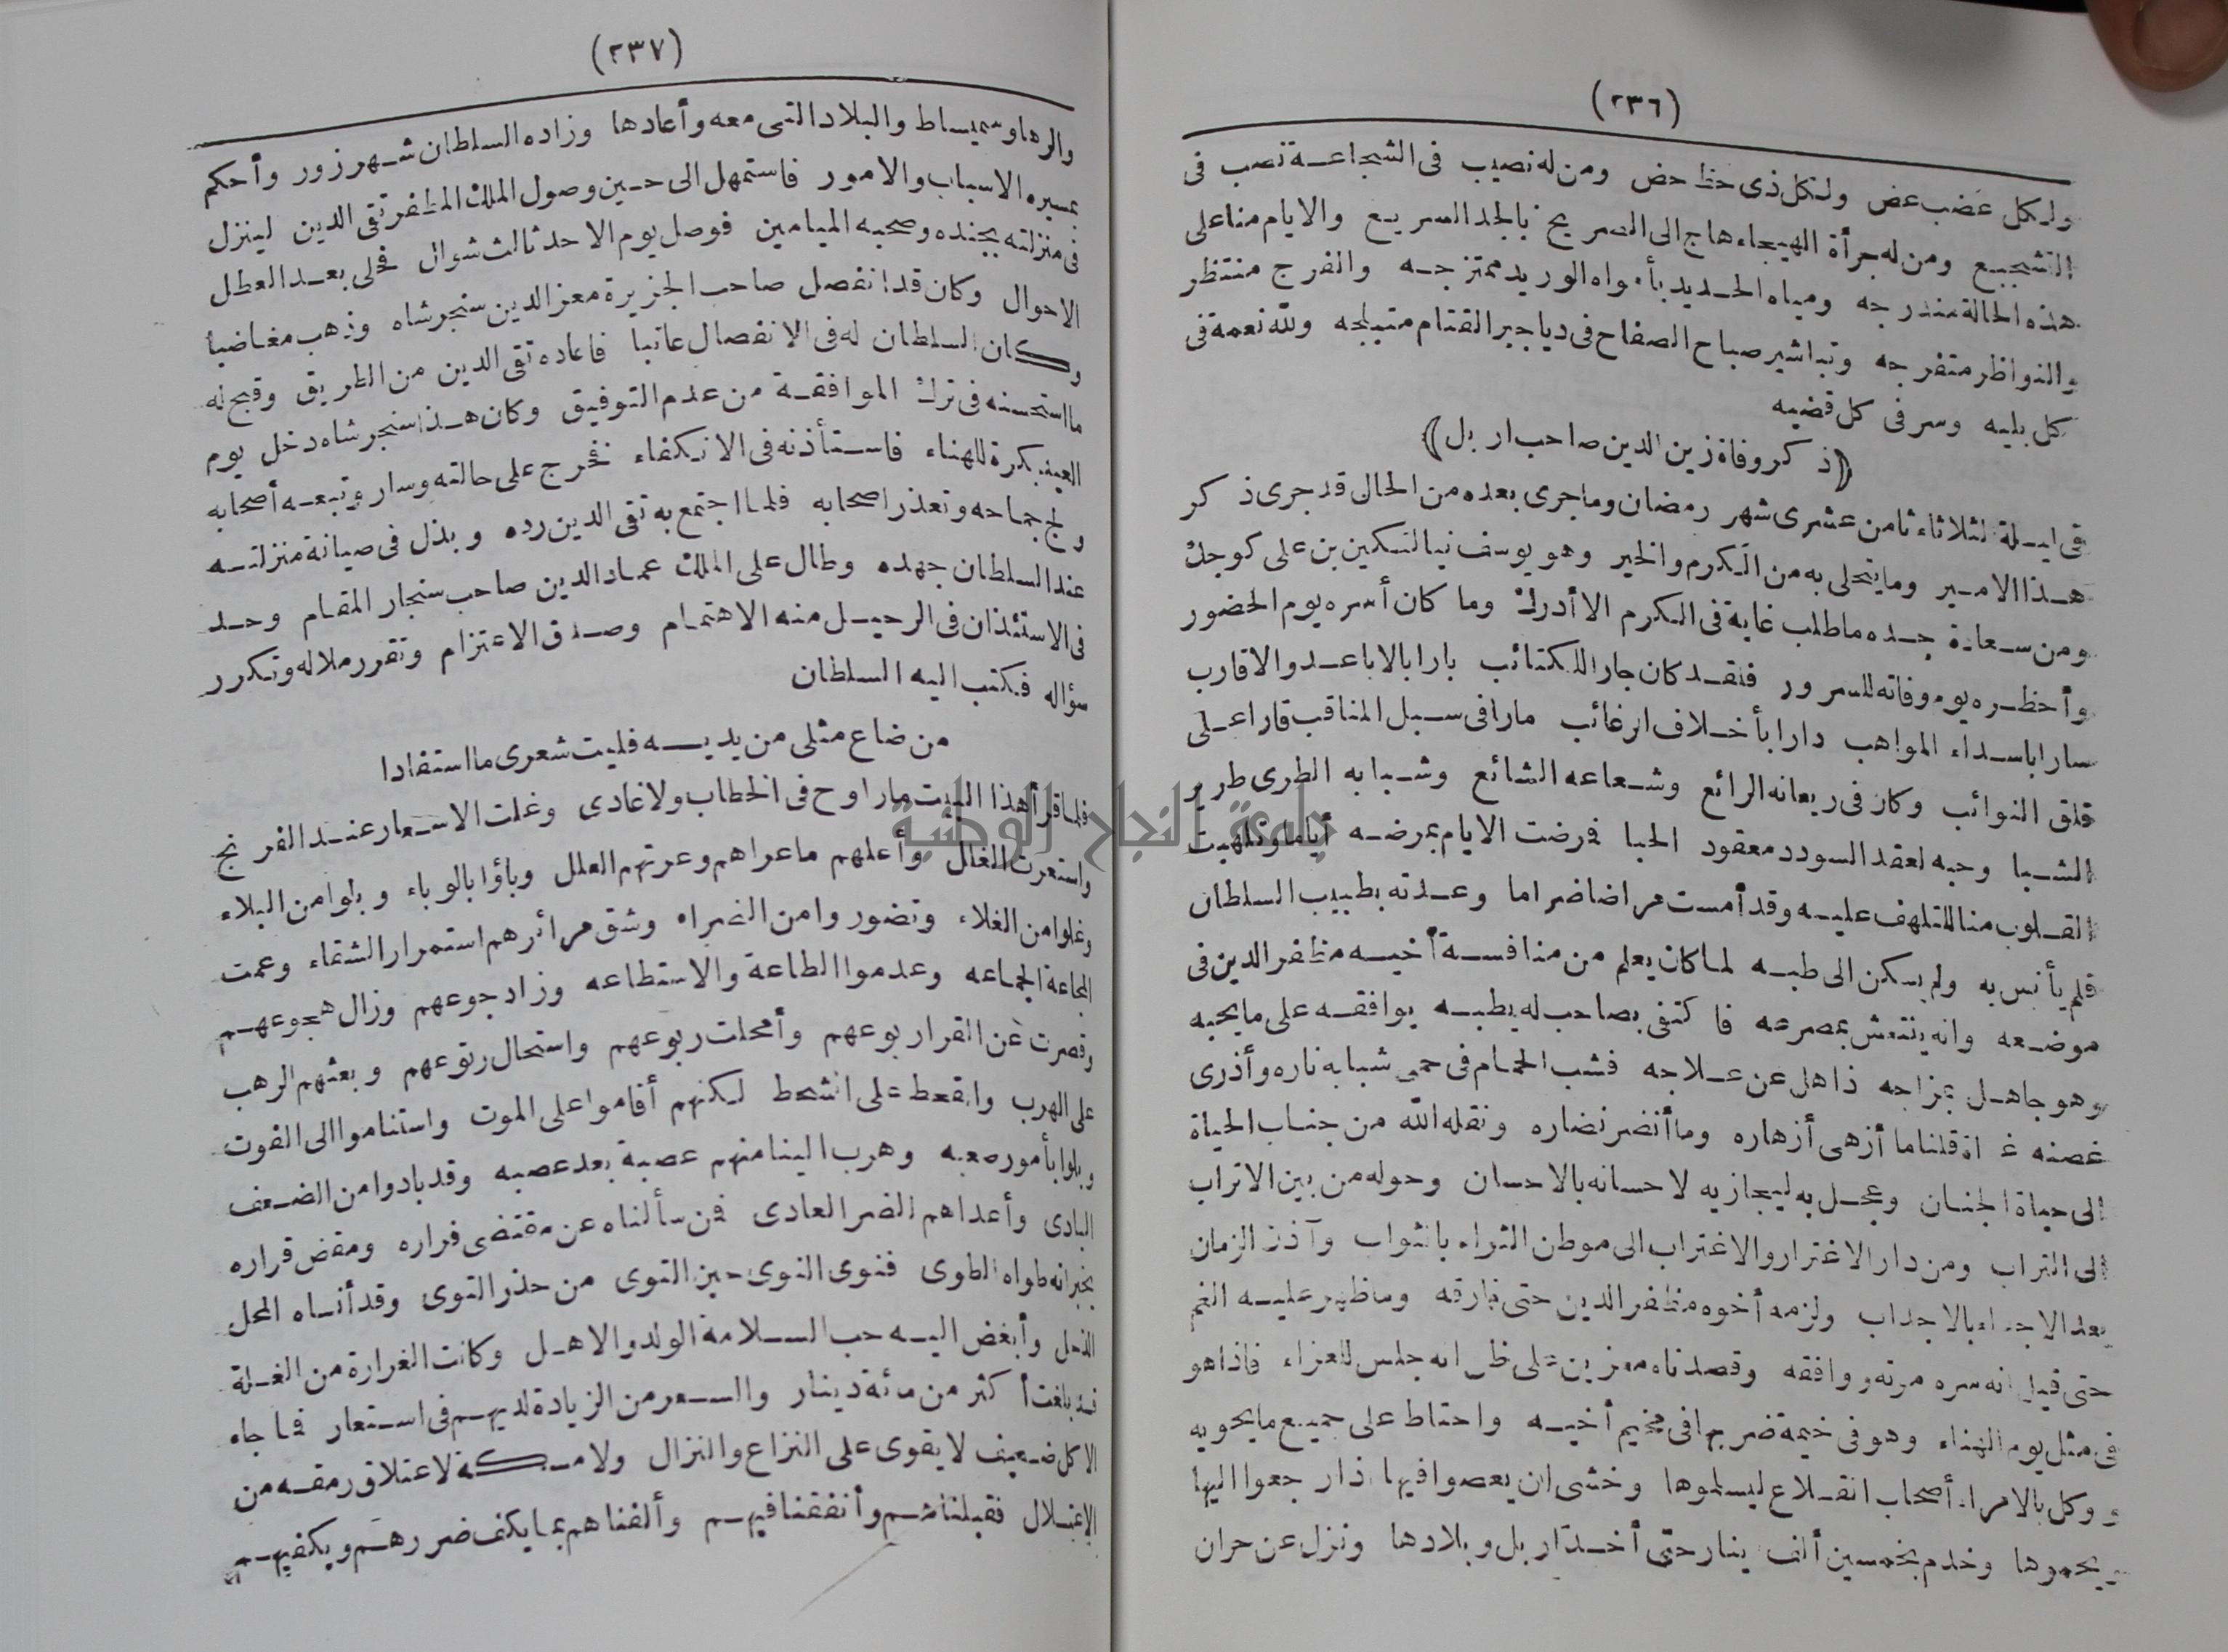 (٢٣٦)
ولكل غضب عض ولكل ذى حظ حض ومن له نصيب فى الشجاعة نصب فى
التشجيع ومن له جرأة الهيجاء هاج الى الصريخ بالجد السريع والايام منا على
هذه الحالة مندرجه ومياه الحديد بأمواه الوريد ممتزجه والفرج منتظر
والنواظر متفرجه وتباشير صباح الصفاح فى دياجير القتام متبلجه ولله نعمة فى
كل بليه وسر فى كل قضيه
(ذكر وفاة زين الدين صاحب اربل)
فى ليلة الثلاثاء ثامن عشرى شهر رمضان وما جرى بعده من الحال قد جرى ذكر
هذا الامير وما يتحلى به من الكرم والخير وهو يوسف نيالتكين بن على كوجك
ومن سعادة جده ما طلب غاية فى الكرم الا أدرك وما كان أسره يوم الحضور
وأحظره يوم وفاته للسرور فلقد كان جارا للكتائب بارا بالاباعد والاقارب
سارا باسداء المواهب دارا بأخلاف الرغائب مارا فى سبل المناقب قارا على
قلق النوائب وكان فى ريعانه الرائع وشعاعه الشائع وشبابه الطرى طرير
الشبا وحبه لعقد السودد معقود الحبا فمرضت الايام بمرضه أياما وتلهبت
القلوب منا للتلهف عليه وقد أمست مراضا ضراما وعدته بطبيب السلطان
فلم يأنس به ولم يسكن الى طبه لما كان يعلم من منافسة أخيه مظفر الدين فى
موضعه وانه ينتعش بمصرعه فاكتفى بصاحب له يطبه يوافقه على ما يحبه
وهو جاهل بمزاجه ذاهل عن علاجه فشب الحمام فى حمى شبابه ناره وأذرى
غصنه غـ اذ قلنا ما أزهى أزهاره وما أنضر نضاره ونقله الله من جناب الحياة
الى حياة الجنان وعجل به ليجازيه لاحسانه بالاحسان وحوله من بين الاتراب
الى التراب ومن دار الاغترار والاغتراب الى موطن الثراء بالثواب وآذن الزمان
بعد الاجداء بالاجداب ولزمه أخوه مظفر الدين حتى فارقه وما ظهر عليه الغم
حتى قيل انه سره موته ووافقه وقصدناه معزين على ظن انه جلس للعزاء فاذا هو
فى مثل يوم الهناء وهو فى خيمة ضربها فى مخيم أخيه واحتاط على جميع ما يحويه
ووكل بالامراء أصحاب القلاع ليسلموها وخشى ان يعصوا فيها اذا رجعوا اليها
ويحموها وخدم بخمسين ألف دينار حتى أخذ اربل وبلادها ونزل عن حران
(٢٣٧)
والرها وسميساط والبلاد التى معه وأعادها وزاده السلطان شهرزور وأحكم
بمسيره الاسباب والامور فاستمهل الى حين وصول الملك المظفر تقى الدين لينزل
فى منزلته بجنده وصحبه الميامين فوصل يوم الاحد ثالث شوال فحلى بعد العطل
الاحوال وكان قد انفصل صاحب الجزيرة معز الدين سنجرشاه وذهب مغاضبا
وكان السلطان له فى الانفصال عاتبا فاعاده تقى الدين من الطريق وقبح له
ما استحسنه فى ترك الموافقة من عدم التوفيق وكان هذا سنجرشاه دخل يوم
العيد بكرة للهناء فاستأذنه فى الانكفاء فخرج على حالته وسار وتبعه أصحابه
ولج جماحه وتعذر اصحابه فلما اجتمع به تقى الدين رده وبذل فى صيانة منزلته
عند السلطان جهده وطال على الملك عماد الدين صاحب سنجار المقام وجد
فى الاستئذان فى الرحيل منه الاهتمام وصدق الاعتزام وتقرر ملاله وتكرر
سؤاله فكتب اليه السلطان
من ضاع مثلى من يديه فليت شعرى ما استفادا
فلما قرأ هذا البيت ما راوح فى الخطاب ولا غادى وغلت الاسعار عند الفرنج
واستعرت الغلل وأعلهم ما عراهم وعرتهم العلل وباؤا بالوباء وبلوا من البلاء
وغلوا من الغلاء وتضوروا من الضراء وشق مرائرهم استمرار الشقاء وعمت
المجاعة الجماعه وعدموا الطاعة والاستطاعه وزاد جوعهم وزال هجوعهم
وقصرت عن القرار بوعهم وأمحلت ربوعهم واستحال رتوعهم وبعثهم الرهب
على الهرب والقحط على الشحط لكنهم أقاموا على الموت واستناموا الى الفوت
وبلوا بأمور صعبه وهرب الينا منهم عصبة بعد عصبه وقد بادوا من الضعف
البادى وأعداهم الضر العادى فمن سألناه عن مقتضى فراره ومقض قراره
يخبر انه طواه الطوى فنوى النوى حين التوى من حذر التوى وقد أنساه المحل
الذحل وأبغض اليه حب السلامة الولد والاهل وكانت الغرارة من الغلة
قد بلغت أكثر من مائة دينار والسعر من الزيادة لديهم فى استعار فما جاء
الا كل ضعيف لا يقوى على النزاع والنزال ولا مسكة لاعتلاق رمقه من
الاعتلال فقبلناهم وأنفقنا فيهم وألفناهم بما يكف ضررهم ويكفيهم
جامعة النجاح الوطنية